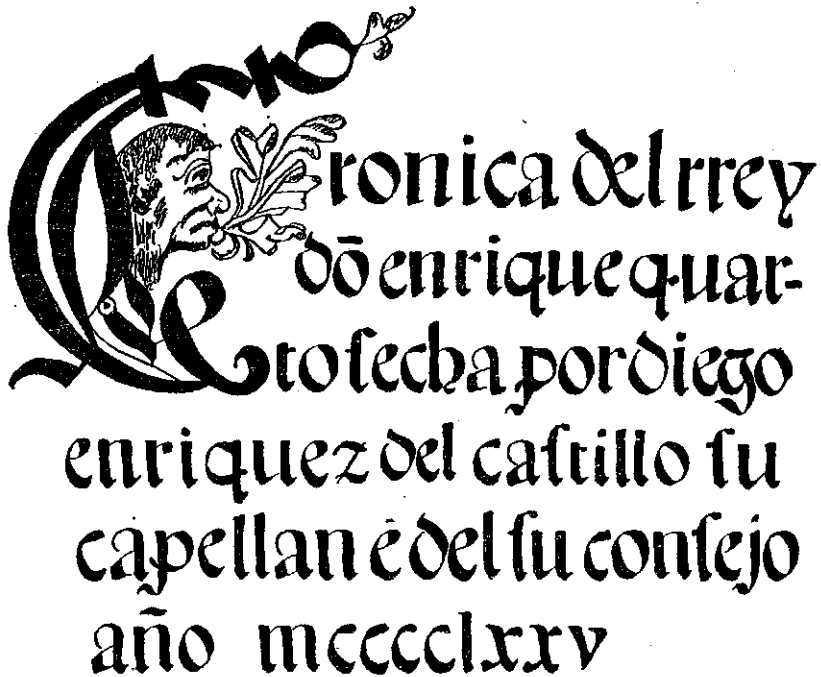 Cronica del rrey
dō enrique quar-
to fecha por diego
enriquez del caſtillo ſu
capellan é del ſu conſejo
año mccccclxxv